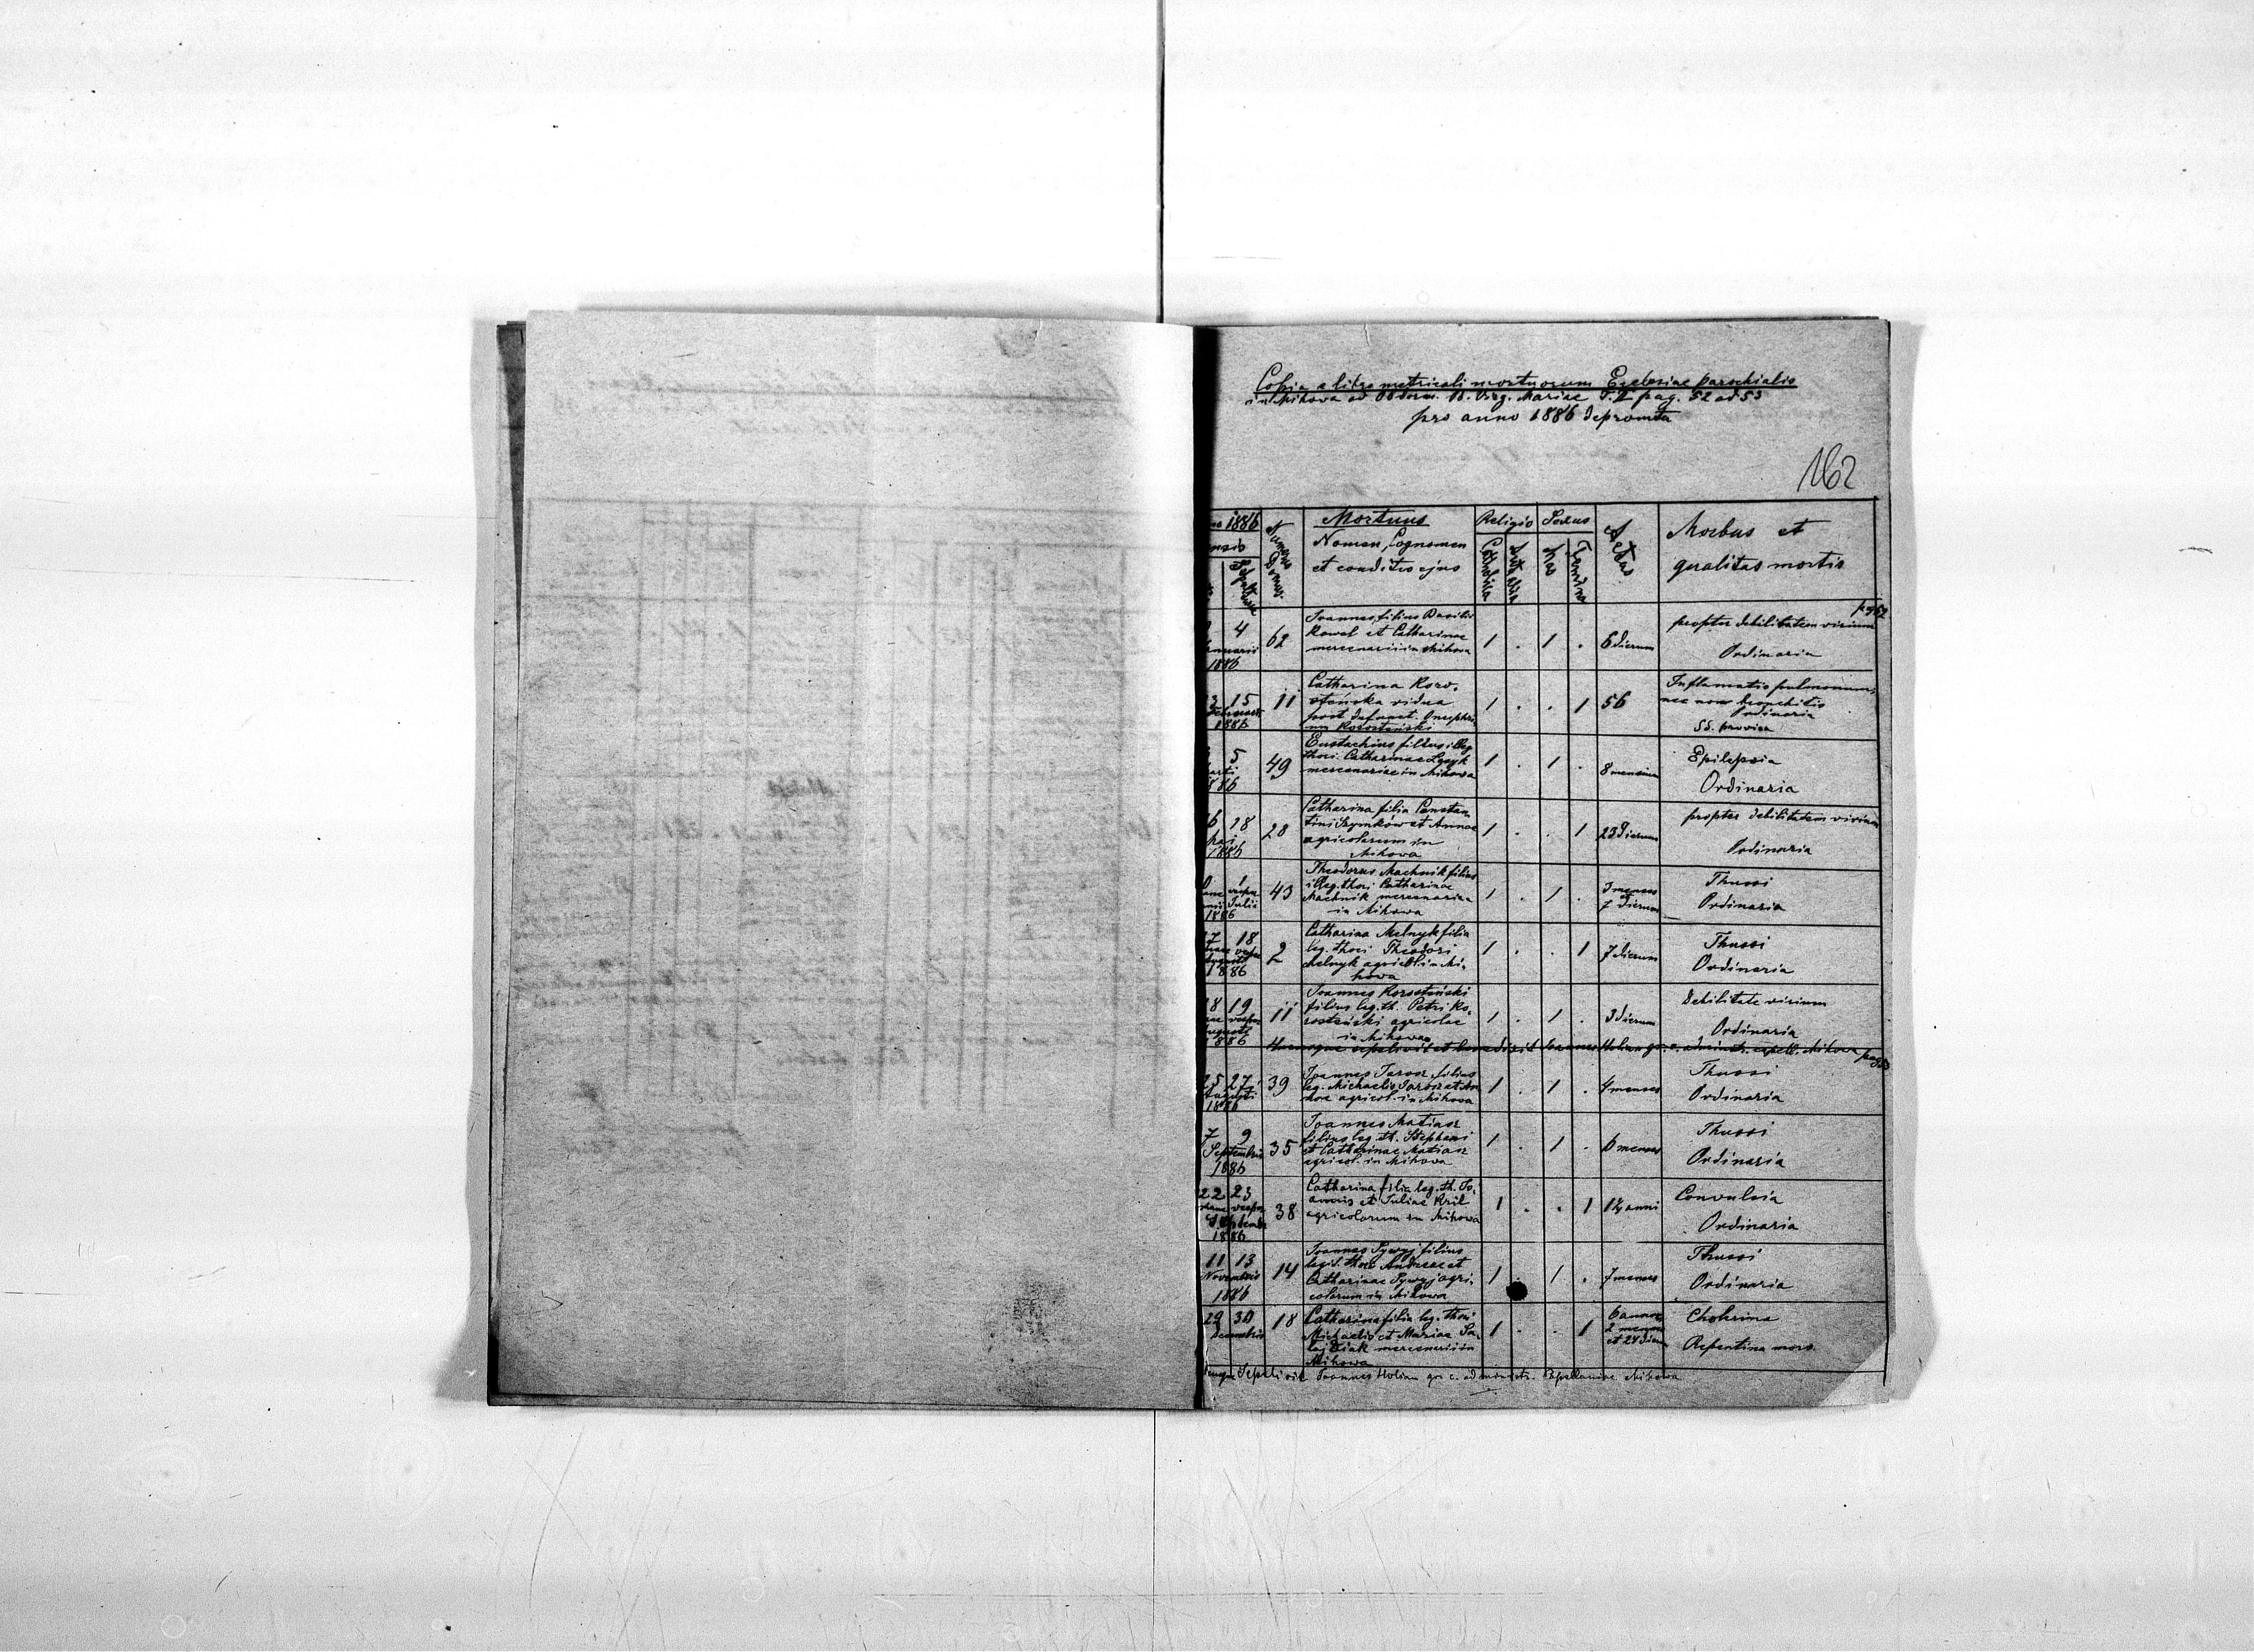 Copia e libro metricali mortuorum Ecclesiae parochialis
in Mikowa ad Obdorm. B. Virg. Mariae T. II pag. 52 ad 53
pro anno 1886 depromta
162
1886
Mensis
Sepultura
Numerus Domus
Mortuus
Nomen, Cognomen
et conditio ejus
Religio
Catholica
Aut alia
Sexus
Mas
Femina
Aetas
Morbus et
qualitas mortis
pag 52
4
1886
62
Joannes, filius Basilii
Kowal et Catharinae
mercenarii in Mikowa
1 . 1 .
6 dierum
propter debilitatem virium
Ordinaria
15
Februarii
1886
11
Catharina Koro-
steńska vidua
post defunct. Onuphri-
um Korosteński
1 . . 1
56
Inflamatio pulmonum,
nec non bronchitis
Ordinaria
SS. provisa
5
49
Eustachius filius illeg.
thori Catharinae
mercenariae in Mikowa
1 . 1 .
8 mensium
Epilepsia
Ordinaria
18
1886
28
Catharina filia Constan-
tini Szymków et Annae
agricolarum in
Mikowa
1 . . 1
23 dierum
propter debilitatem virium
Ordinaria
1
Julii
1886
43
Theodorus Machnik filius
illeg. thori Catharinae
Machnik mercenariae
in Mikowa
1 . 1 .
3 menses
7 dierum
Thussi
Ordinaria
18
1886
2
Catharina Melnyk filia
leg. thori Theodori
Melnyk agricol. in Mi-
kowa
1 . . 1
7 dierum
Thussi
Ordinaria
19
1886
11
Joannes Korosteński
filius leg. th. Petri Ko-
rosteński agricolae
in Mikowa
1 . 1 .
3 dierum
Debilitate virium
Ordinaria
sepelivit et benedixit Joannes Holian gr. c. administr. capell. Mikowa
pag 53
25 27
Augusti
1886
39
Joannes Jarosz filius
leg. Michaelis Jarosz et An-
nae agricol. in Mikowa
1 . 1 .
4 menses
Thussi
Ordinaria
7 9
Septembris
1886
35
Joannes Matiasz
filius leg. th. Stephani
et Catharinae Matiasz
agricol. in Mikowa
1 . 1 .
6 menses
Thussi
Ordinaria
22 23
mane vesper
Septembr
1886
38
Catharina filia leg. th. Jo-
annis et Juliae Kril
agricolarum in Mikowa
1 . . 1
1½ anni
Convulsia
Ordinaria
11 13
Novembris
1886
14
Joannes filius
legit. thori Andreae et
Catharinae agri-
colarum in Mikowa
1 . 1 .
7 menses
Thussi
Ordinaria
29 30
Decembris
18
Catharina filia leg. thori
Michaelis et Mariae Sa-
mercenarii in
Mikowa
1 . . 1
6 annor
2 menses
et 24 dierum
Cholerina
Repentina mors
Sepelivit Joannes Holian gr. c. administr. Capellaniae Mikowa